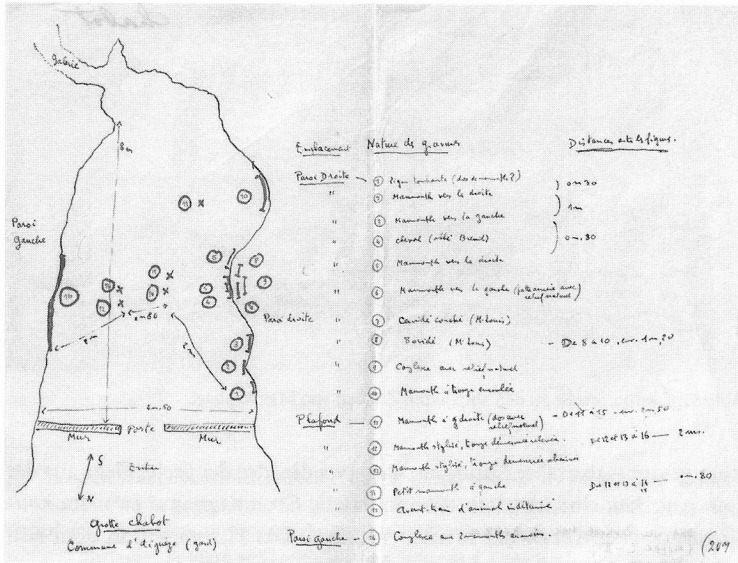 Galerie
8 m
Paroi
gauche
Paroi droite
2m50
Mur
Porte
Mur
S
N
Grotte Chabot
Commune d'Aiguèze (Gard)
Emplacement Nature des gravures Distances entre les figures.
Paroi Droite 1 Ligne (dos de mammouth?)
" 2 Mammouth vers la droite 0m30
" 3 Mammouth vers la gauche 1m
" 4 Cheval (abbé Breuil) 0m.80
" 5 Mammouth vers la droite
" 6 Mammouth vers la gauche ( avec relief naturel)
" 7 Cervidé couché (M. Louis)
" 8 Bovidé (M. Louis) - De 8 à 10, env. 1m,20
" 9 Complexe avec relief naturel
" 10 Mammouth à trompe enroulée
Plafond 11 Mammouth à droite (dos avec relief naturel) - De 11 à 15 - env. 1m50
" 12 Mammouth stylisé, trompe De 12 et 13 à 16 2m.
" 13 Mammouth stylisé, trompe
" 14 Petit mammouth à gauche De 12 et 13 à 14 0m.80
" 15 Avant-train d'animal indéterminé
Paroi gauche 16 Complexe avec mammouths
(209